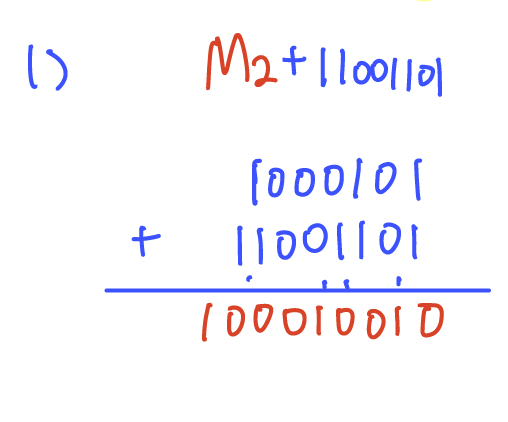 1) M2+11001101
1000101
+ 11001101
100010010